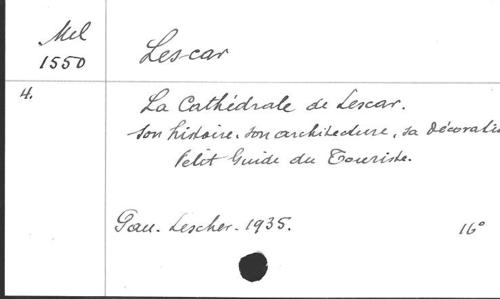 Mel
1550
Lescar
4.
La Cathédrale de Lescar.
son histoire, son architecture, sa décoratio
Petit Guide du Touriste.
Pau. Lescher. 1935.
16°